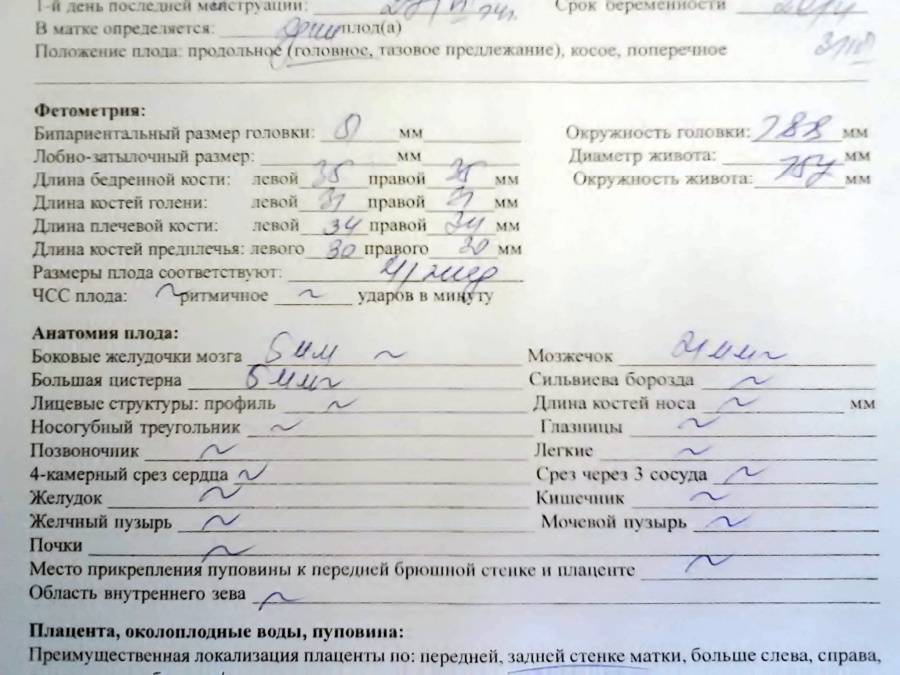 1-й день последней менструации: Срок беременности
В матке определяется: один плод(а)
Положение плода: продольное (головное, тазовое предлежание), косое, поперечное
Фетометрия:
Бипариентальный размер головки: мм Окружность головки: 188 мм
Лобно-затылочный размер: мм Диаметр живота: мм
Длина бедренной кости: левой 35 правой 35 мм Окружность живота: 157 мм
Длина костей голени: левой 31 правой 31 мм
Длина плечевой кости: левой 34 правой 34 мм
Длина костей предплечья: левого 30 правого 30 мм
Размеры плода соответствуют: 21 нед
ЧСС плода: ~ ритмичное ~ ударов в минуту
Анатомия плода:
Боковые желудочки мозга 6 мм ~ Мозжечок 21 мм ~
Большая цистерна 5 мм ~ Сильвиева борозда ~
Лицевые структуры: профиль ~ Длина костей носа ~ мм
Носогубный треугольник ~ Глазницы ~
Позвоночник ~ Легкие ~
4-камерный срез сердца ~ Срез через 3 сосуда ~
Желудок ~ Кишечник ~
Желчный пузырь ~ Мочевой пузырь ~
Почки ~
Место прикрепления пуповины к передней брюшной стенке и плаценте ~
Область внутреннего зева ~
Плацента, околоплодные воды, пуповина:
Преимущественная локализация плаценты по: передней, задней стенке матки, больше слева, справа,